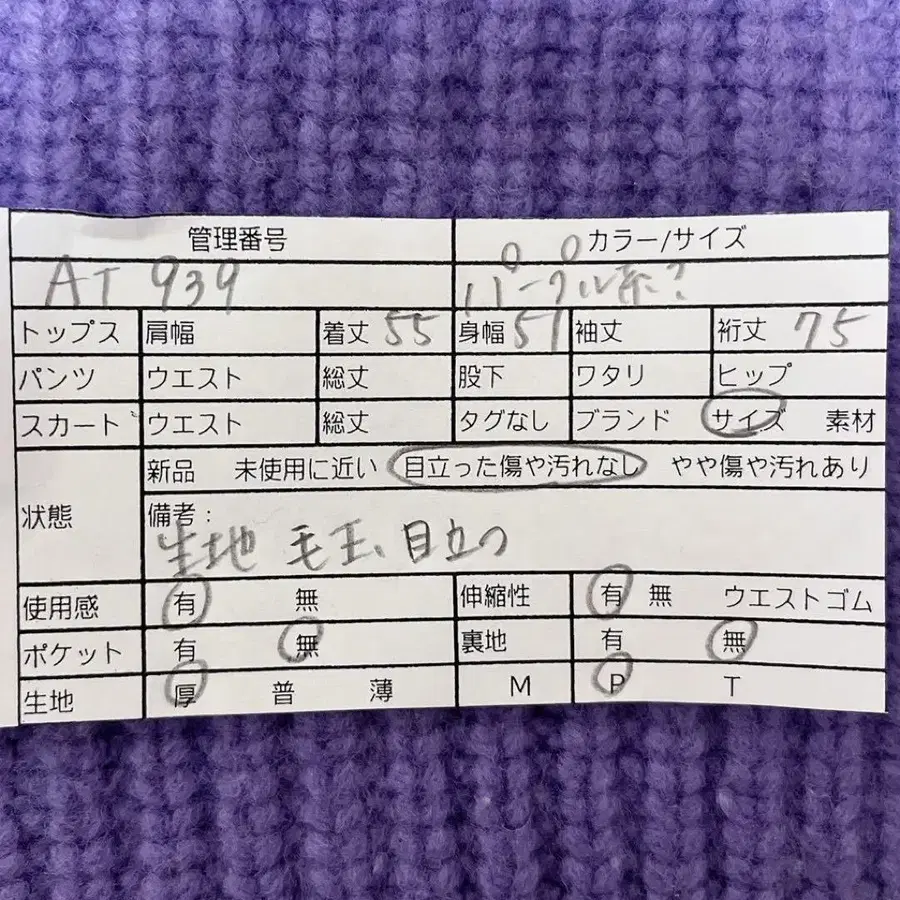 管理番号 カラー/サイズ
AT 939 パープル系?
トップス 肩幅 着丈 55 身幅 51 袖丈 裄丈 75
パンツ ウエスト 総丈 股下 ワタリ ヒップ
スカート ウエスト 総丈 タグなし ブランド サイズ 素材
新品 未使用に近い 目立った傷や汚れなし やや傷や汚れあり
状態 備考:
生地 毛玉、目立つ
使用感 有 無 伸縮性 有 無 ウエストゴム
ポケット 有 無 裏地 有 無
生地 厚 普 薄 M P T